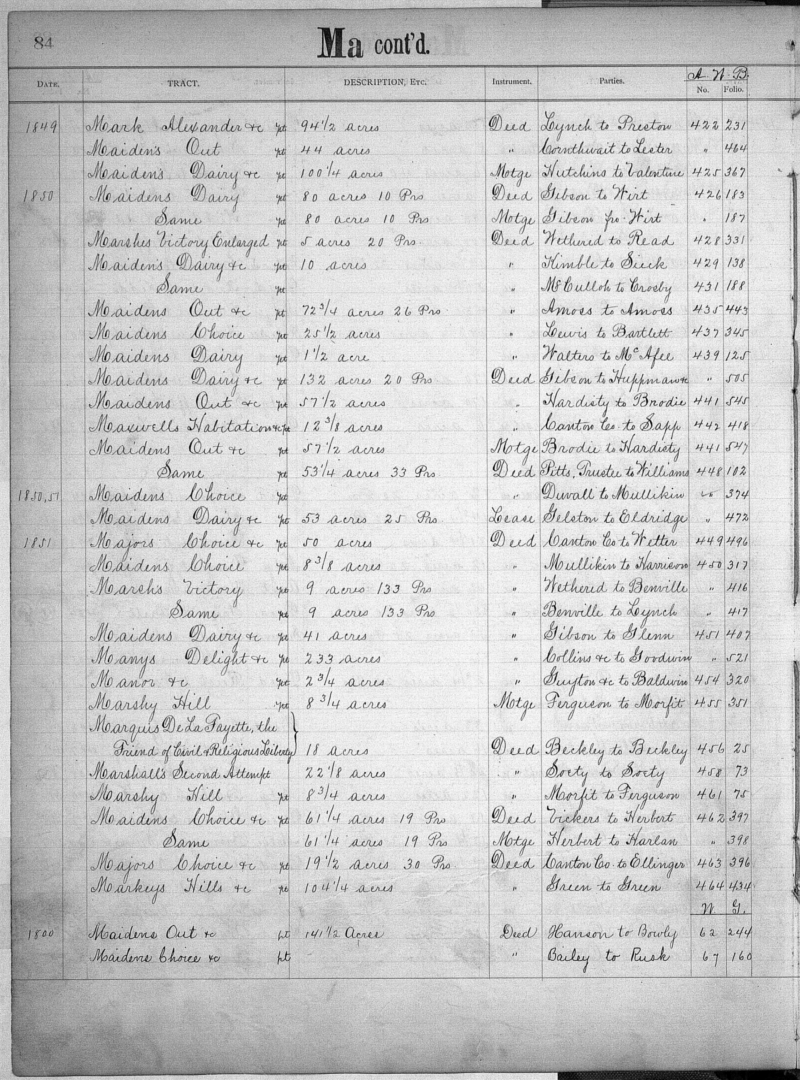 84
Ma cont'd.
A. W. B.
DATE. TRACT. DESCRIPTION, Etc. Instrument. Parties. No. Folio.
1849 Mark Alexander &c pt 94 1/2 acres Deed Lynch to Preston 422 231
Maidens Out pt 44 acres " Cornthwait to Lester " 464
Maidens Dairy &c pt 100 1/4 acres Motge Hutchins to Valentine 425 367
1850 Maidens Dairy pt 80 acres 10 Prs Deed Gibson to Wirt 426 183
Same pt 80 acres 10 Prs Motge Gibson fro. Wirt " 187
Marshes Victory Enlarged pt 5 acres 20 Prs Deed Wethered to Read 428 331
Maidens Dairy &c pt 10 acres " Kimble to Suck 429 138
Same pt " McCulloh to Crosby 431 188
Maidens Out &c pt 72 3/4 acres 26 Prs " Amoss to Amoss 435 443
Maidens Choice pt 25 1/2 acres " Lewis to Bartlett 437 345
Maidens Dairy pt 1 1/2 acre " Walters to McAfee 439 125
Maidens Dairy &c pt 132 acres 20 Prs Deed Gibson to Huppman &c " 505
Maidens Out &c pt 57 1/2 acres " Hardisty to Brodie 441 545
Maxwells Habitation &c pt 12 3/8 acres " Canton Co. to Sapp 442 418
Maidens Out &c pt 57 1/2 acres Motge Brodie to Hardisty 441 547
Same pt 53 1/4 acres 33 Prs Deed Pitts, Trustee to Williams 448 102
1850,51 Maidens Choice pt " Duvall to Mullikin " 374
Maidens Dairy &c pt 53 acres 25 Prs Lease Gelston to Eldridge " 472
1851 Majors Choice &c pt 50 acres Deed Canton Co to Wetter 449 496
Maidens Choice pt 8 3/8 acres " Mullikin to Harrison 450 317
Marsh's Victory pt 9 acres 133 Prs " Wethered to Benville " 416
Same pt 9 acres 133 Prs " Benville to Lynch " 417
Maidens Dairy &c pt 41 acres " Gibson to Glenn 451 407
Manys Delight &c pt 233 acres " Collins &c to Goodwin " 521
Manor &c pt 2 3/4 acres " Guyton &c to Baldwin 454 320
Marshy Hill pt 8 3/4 acres Motge Ferguson to Morfit 455 351
Marquis De La Fayette, the
Friend of Civil & Religious Liberty } 18 acres Deed Beckley to Beckley 456 25
Marshall's Second Attempt 22 1/8 acres " Socty to Socty 458 73
Marshy Hill pt 8 3/4 acres " Morfit to Ferguson 461 75
Maidens Choice &c pt 61 1/4 acres 19 Prs Deed Vickers to Herbert 462 397
Same pt 61 1/4 acres 19 Prs Motge Herbert to Harlan " 398
Majors Choice &c pt 19 1/2 acres 30 Prs Deed Canton Co. to Ellinger 463 396
Markeys Hills &c pt 104 1/4 acres " Green to Green 464 434
W. G.
1800 Maidens Out &c pt 141 1/2 Acres Deed Hanson to Bowly 62 244
Maidens Choice &c pt " Bailey to Rusk 67 160